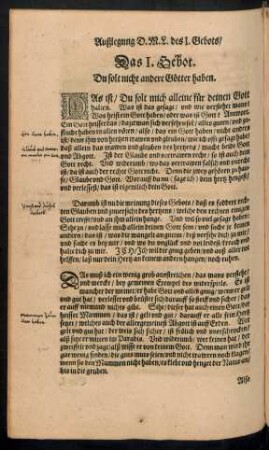 Außlegung D. M. L. des I. Gebots/
Das I. Gebot.
Du solt nicht andere Götter haben.
DAs ist / Du solt mich alleine für deinen Gott
halten. Was ist das gesagt / und wie verstehet mans?
Was heist ein Gott haben / oder was ist Gott? Antwort.
Ein Gott heisset das / dazu man sich versehen sol / alles guten / und zu-
flucht haben in allen nöten / also / das ein Gott haben / nichts anders
ist / denn ihm von hertzen trawen und gleuben / wie ich offt gesagt habe /
daß allein das trawen und gleuben des hertzens / mache beide Gott
und Abgott. Ist der Glaube und vertrawen recht / so ist auch dein
Gott recht. Und widerumb / wo das vertrawen falsch und unrecht
ist / da ist auch der rechte Gott nicht. Denn die zwey gehören zu hauf-
fe / Glaube und Gott. Worauff du nu (sage ich) dein hertz hengest /
und verlessest / das ist eigentlich dein Gott.
Darumb ist nu die meinung dieses Gebots /
rem Glauben und zuversicht des hertzens / welche den rechten einigen
Gott treffe / und an ihm allein hange. Und wil so viel gesagt haben:
Sihe zu / und lasse mich allein deinen Gott sein / und suche je keinen
andern / das ist / was dir mangelt an gutem / des versihe dich zu mir /
und suche es bey mir / und wo du unglück und not leidest / kreuch und
halte dich zu mir. ICH / ich wil dir gnug geben / und aus aller not
helffen / laß nur dein hertz an keinem andern hangen / noch ruhen.
DAs muß ich ein wenig grob ausstreichen / das mans verstehe /
und mercke / bey gemeinen Exempel des widerspiels. Es ist
mancher der meinet / er habe Gott und alles gnug / wenn er gelt
und gut hat / verlesset und brüstet sich darauff so steiff und sicher / das
er auff niemand nichts gibt. Sihe / dieser hat auch einen Gott / der
heisset Mammon / das ist / gelt und gut / darauff er alle sein hertz
setzet / welches auch der allergemeinest Abgott ist auff Erden. Wer
gelt und gut hat / der weis sich sicher / ist frölich und unerschrocken /
als sitze er mitten im Paradis. Und widerumb / wer keines hat / der
zweiffelt und verzagt / als wisse er von keinem Gott. Denn man wird ihr
gar wenig finden / die guts muts seien / nicht trawren noch klagen /
wenn sie den Mammon nicht haben / es klebt und hengt der Natur an /
bis in die gruben.
Also